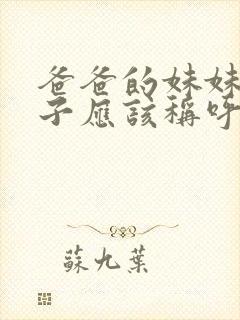 爸爸的妹妹
子應該稱呼
蘇九葉